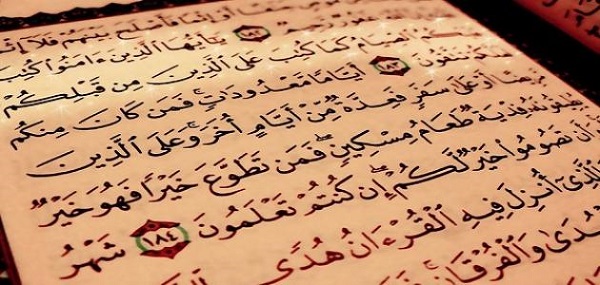 أَوْ إِثْمًا فَأَصْلَحَ بَيْنَهُمْ فَلَآ
يَٰٓأَيُّهَا ٱلَّذِينَ ءَامَنُوا۟ كُتِبَ
ٱلصِّيَامُ كَمَا كُتِبَ عَلَى ٱلَّذِينَ مِن قَبْلِكُمْ
تَتَّقُونَ ١٨٣ أَيَّامًا مَّعْدُودَٰتٍ ۚ فَمَن كَانَ مِنكُم
أَوْ عَلَىٰ سَفَرٍ فَعِدَّةٌ مِّنْ أَيَّامٍ أُخَرَ ۚ وَعَلَى ٱلَّذِينَ
فِدْيَةٌ طَعَامُ مِسْكِينٍ ۖ فَمَن تَطَوَّعَ خَيْرًا فَهُوَ خَيْرٌ
أَن تَصُومُوا۟ خَيْرٌ لَّكُمْ ۖ إِن كُنتُمْ تَعْلَمُونَ ١٨٤ شَهْرُ
ٱلَّذِىٓ أُنزِلَ فِيهِ ٱلْقُرْءَانُ هُدًى
وَٱلْفُرْقَانِ ۚ